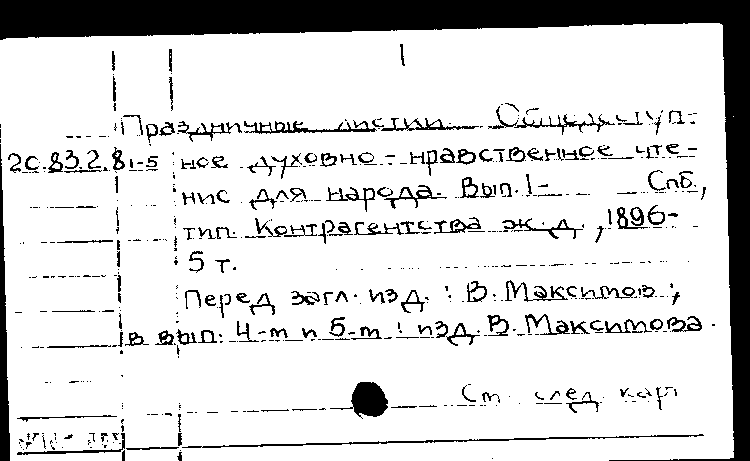 1
Праздничные листки. Общедоступ-
20.83.2.81-5 ное духовно-нравственное чте-
ние для народа. Вып. 1- Спб,
тип. Контрагентства ж.д., 1896-
5 т.
Перед загл. изд.: В. Максимов;
в вып. 4-m и 5-m: изд. В. Максимова.
См. след. карт